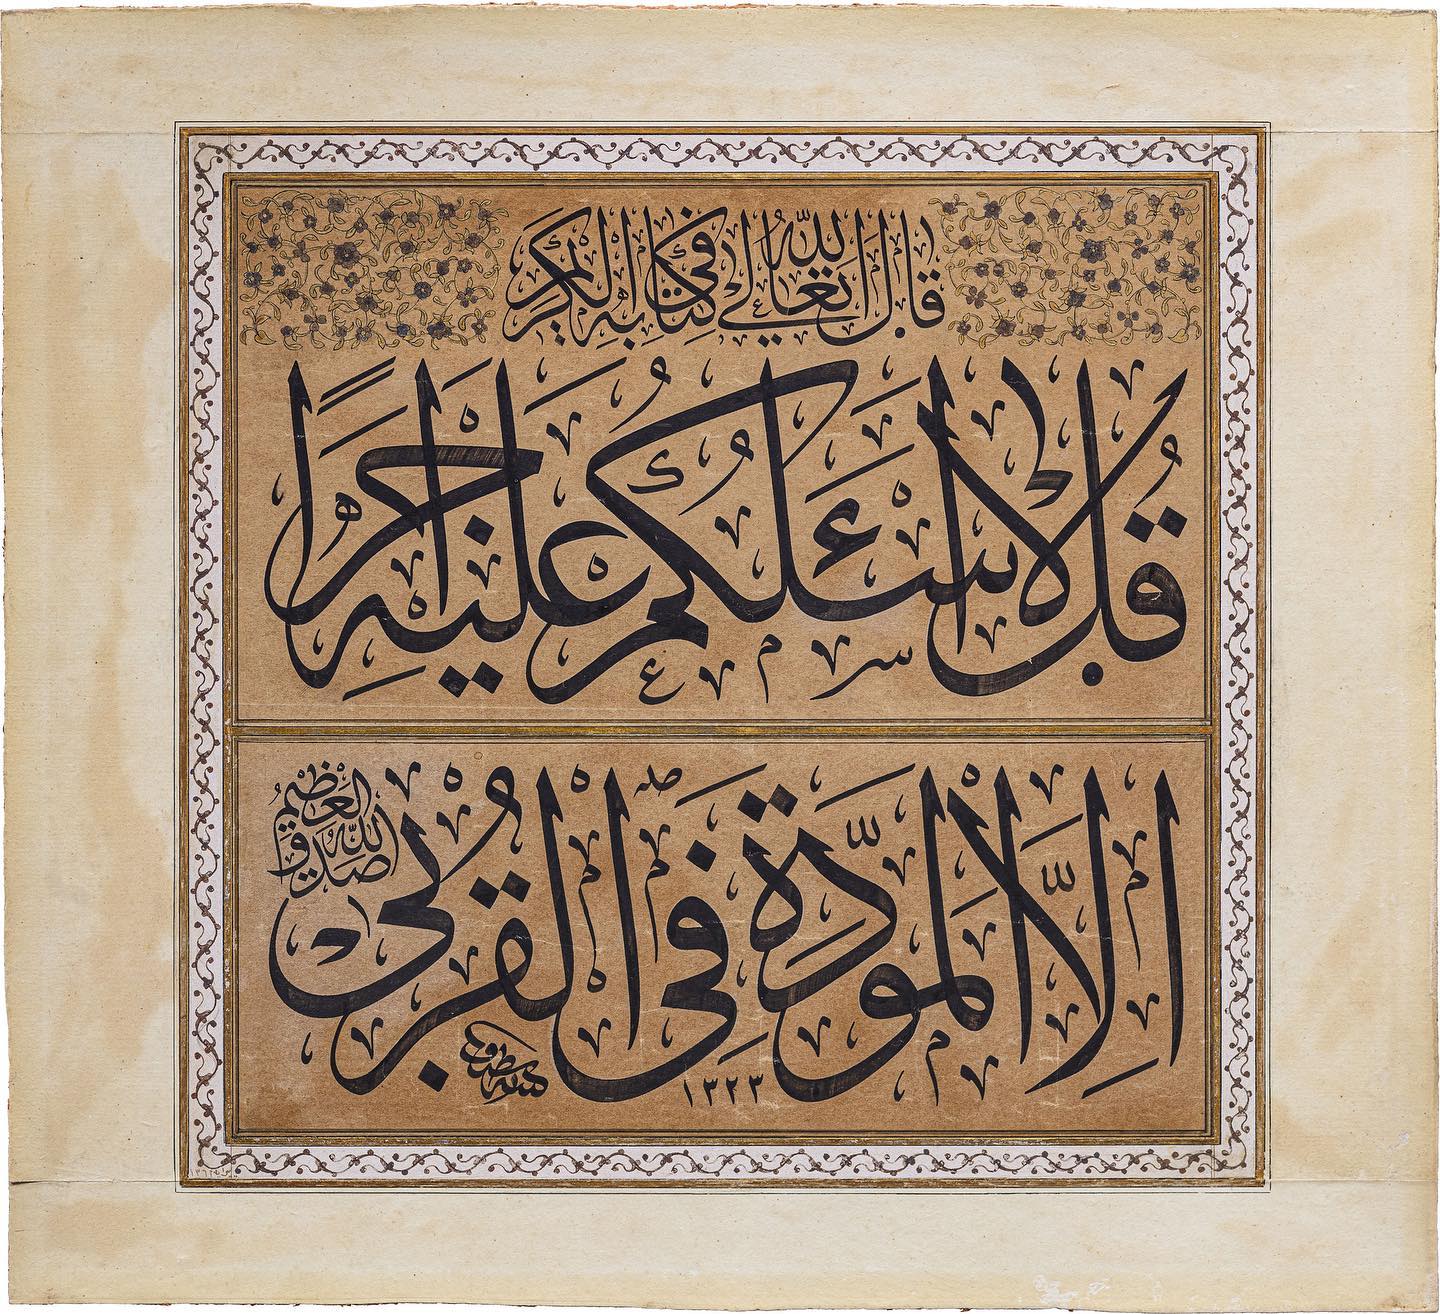 قال الله تعالى في كتابه الكريم
قُل لَا أَسْئَلُكُمْ عَلَيْهِ أَجْرًا
إِلَّا الْمَوَدَّةَ فِي الْقُرْبَى
صدق الله العظيم
١٣٢٣